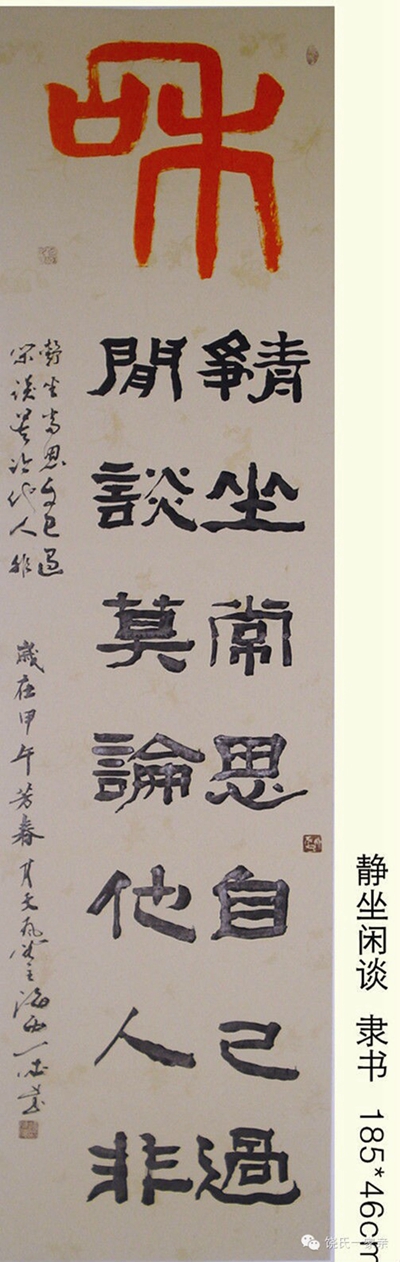 咊
靜坐常思自己過
閒談莫論他人非
靜坐常思自己過
閑談莫論他人非
歲在甲午芳春
静坐闲谈 隶书 185*46cm
饶氏一家亲